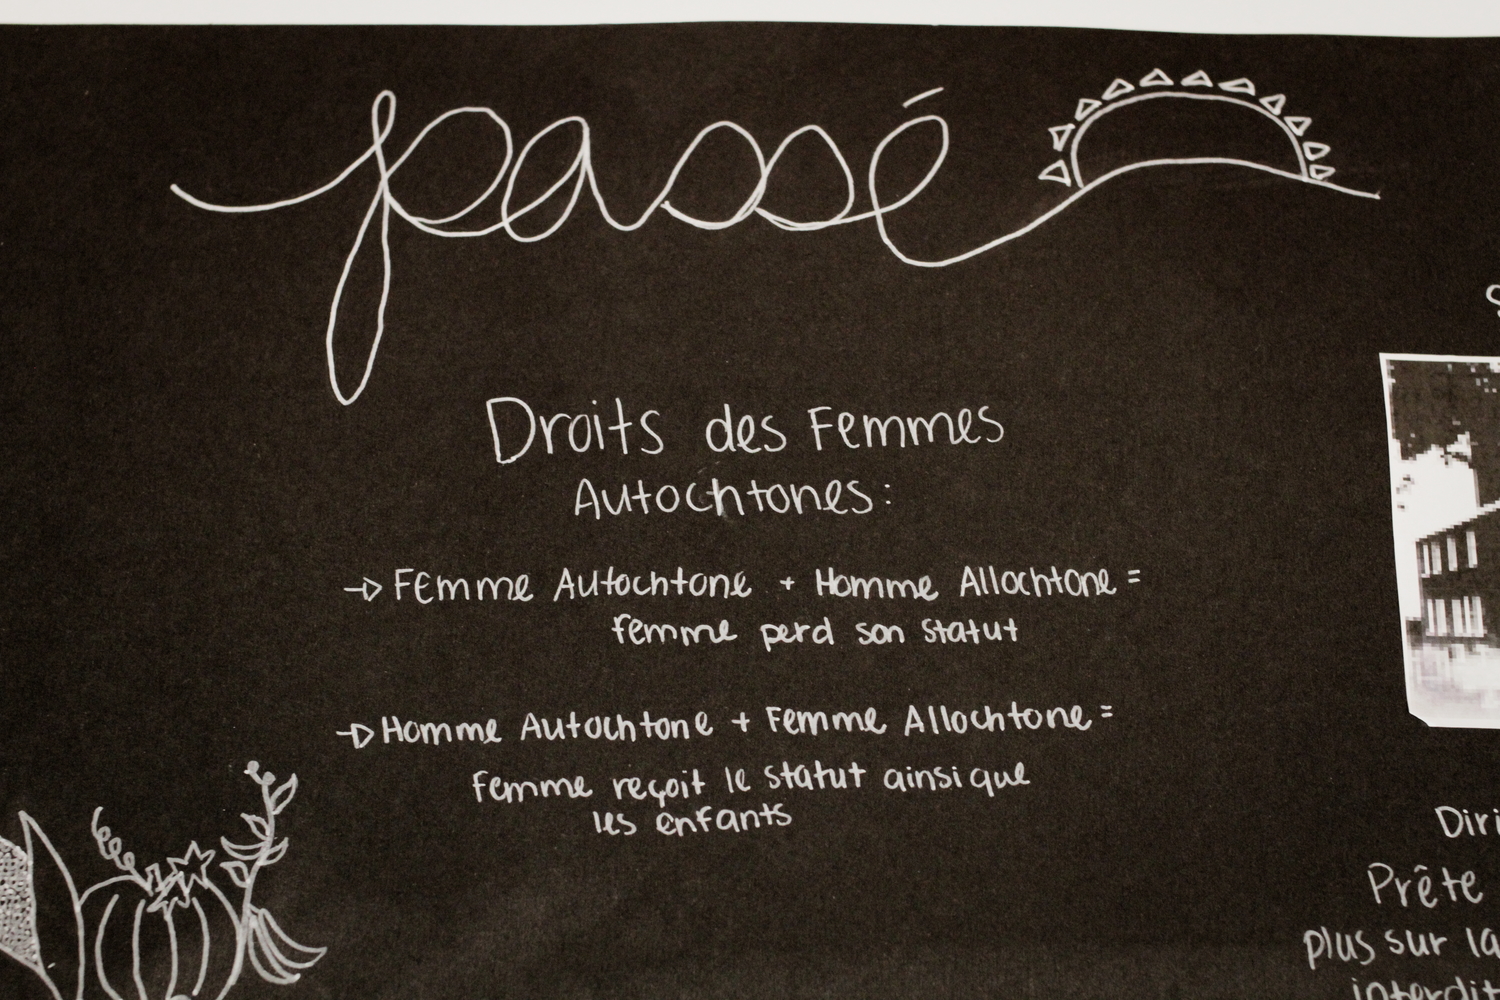 passé
Droits des Femmes
Autochtones:
→ Femme Autochtone + Homme Allochtone =
femme perd son statut
→ Homme Autochtone + Femme Allochtone =
femme reçoit le statut ainsi que
les enfants
Prête
plus sur la